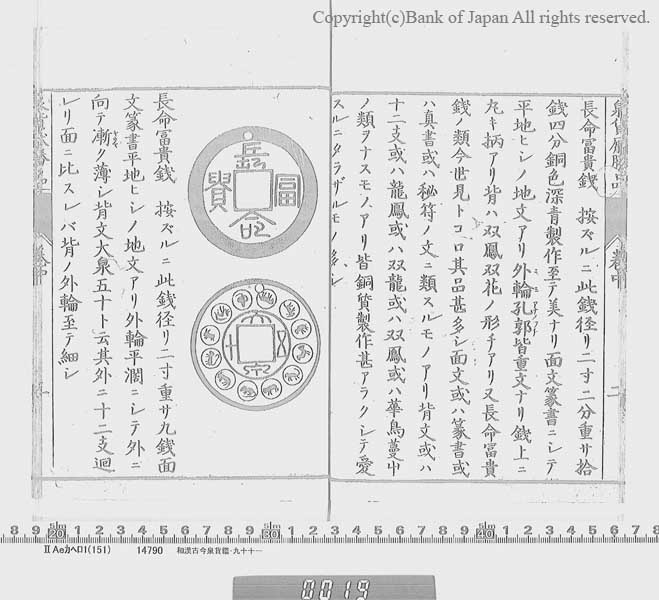 Copyright(c)Bank of Japan All rights reserved.
長命冨貴銭 按ズルニ此銭径リ二寸二分重サ拾
銭四分銅色深青製作至テ美ナリ面文篆書ニシテ
平地ヒシノ地文アリ外輪孔郭皆重文ナリ銭上ニ
丸キ柄アリ背ハ双鳳双花ノ形チアリ又長命冨貴
銭ノ類今世見トコロ其品甚多シ面文或ハ篆書或
ハ真書或ハ秘符ノ文ニ類スルモノアリ背文或ハ
十二支或ハ龍鳳或ハ双龍或ハ双鳳或ハ華鳥蔓中
ノ類ヲナスモノアリ皆銅質製作甚アラクシテ愛
スルニタラザルモノ多シ
冨
貴
命
大
泉
五
十
長命冨貴銭 按ズルニ此銭径リ二寸重サ九銭面
文篆書平地ヒシノ地文アリ外輪平濶ニシテ外ニ
向テ漸ク薄シ背文大泉五十ト云其外ニ十二支廻
レリ面ニ比スレバ背ノ外輪至テ細シ
8 9 20 1 2 3 4 5 6 7 8 9 30 1 2 3 4 5 6 7 8 9 40 1 2 3 4 5 6 7 8
ⅡAeカヘロ1(151) 14790 和漢古今泉貨鑑・九十十一
0019